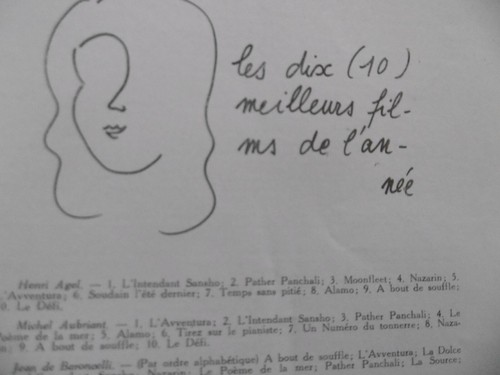 les dix (10)
meilleurs fil-
ms de l'an-
née
Henri Agel. — 1. L'Intendant Sansho; 2. Pather Panchali; 3. Moonfleet; 4. Nazarin; 5.
L'Avventura; 6. Soudain l'été dernier; 7. Temps sans pitié; 8. Alamo; 9. A bout de souffle;
10. Le Défi.
Michel Aubriant. — 1. L'Avventura; 2. L'Intendant Sansho; 3. Pather Panchali; 4. Le
Poème de la mer; 5. Alamo; 6. Tirez sur le pianiste; 7. Un Numéro du tonnerre; 8. Naza-
rin; 9. A bout de souffle; 10. Le Défi.
Jean de Baroncelli. — (Par ordre alphabétique) A bout de souffle; L'Avventura; La Dolce
Sansho; Nazarin; Le Poème de la mer; Pather Panchali; La Source;